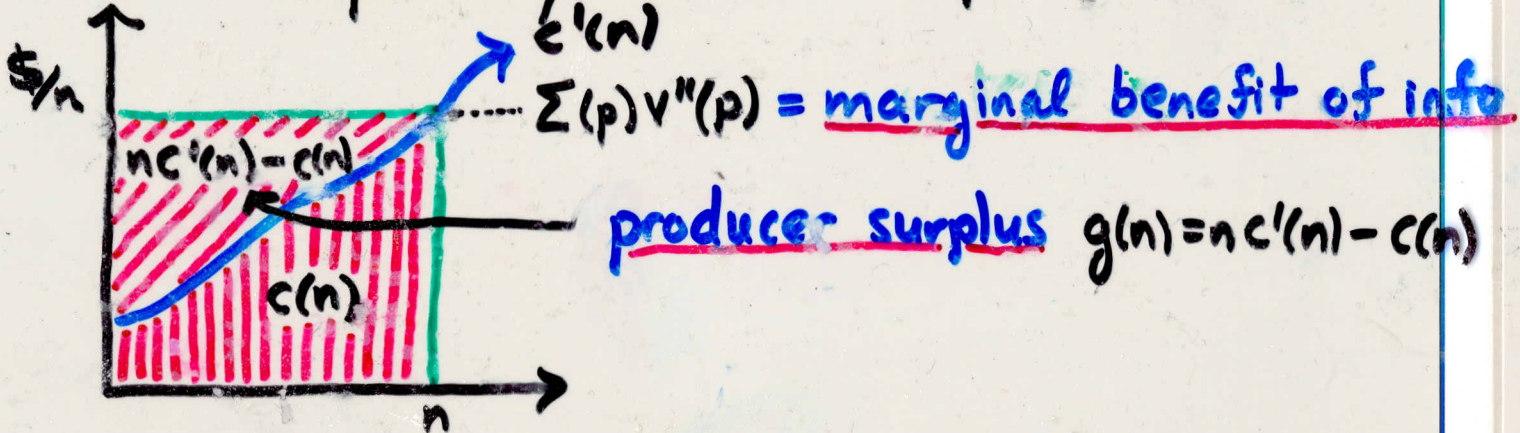 c'(n)
$/n
Σ(p)v"(p) = marginal benefit of info
nc'(n)-c(n)
producer surplus g(n)=nc'(n)-c(n)
c(n)
n